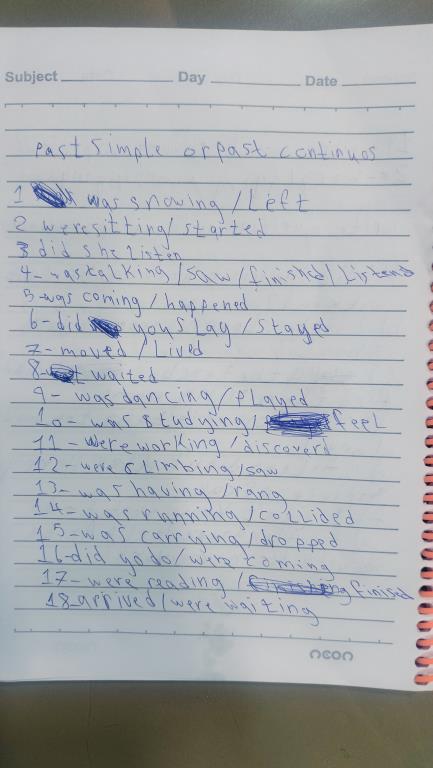 Subject Day Date
past simple or past continuos
1 was snowing / Left
2 were sitting / started
3 did she Listen
4- was talking / saw / finished / Listend
5- was coming / happened
6- did you stay / stayed
7- moved / Lived
8- waited
9- was dancing / played
10- was studying / feel
11- were working / discoverd
12- were climbing / saw
13- was having / rang
14- was running / collided
15- was carrying / dropped
16- did yo do / were coming
17- were reading / finised
18- arrived / were waiting
neon